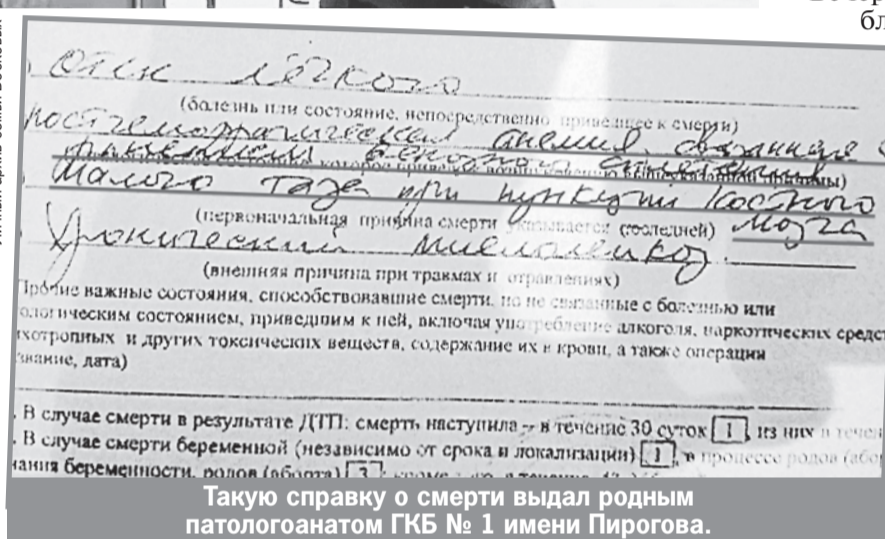 отек лёгкого
(болезнь или состояние, непосредственно приведшее к смерти)
постгеморрагическая анемия, связанная с
ранением венозного сплетения
малого таза при пункции костного
(первоначальная причина смерти указывается последней) мозга
Хронический миелолейкоз.
(внешняя причина при травмах и отравлениях)
Прочие важные состояния, способствовавшие смерти, но не связанные с болезнью или
ологическим состоянием, приведшим к ней, включая употребление алкоголя, наркотических средст
ихотропных и других токсических веществ, содержание их в крови, а также операции
звание, дата)
В случае смерти в результате ДТП: смерть наступила - в течение 30 суток 1, из них в течен
В случае смерти беременной (независимо от срока и локализации) 1, в процессе родов (або
ания беременности, родов (аборта) 3
Такую справку о смерти выдал родным
патологоанатом ГКБ № 1 имени Пирогова.